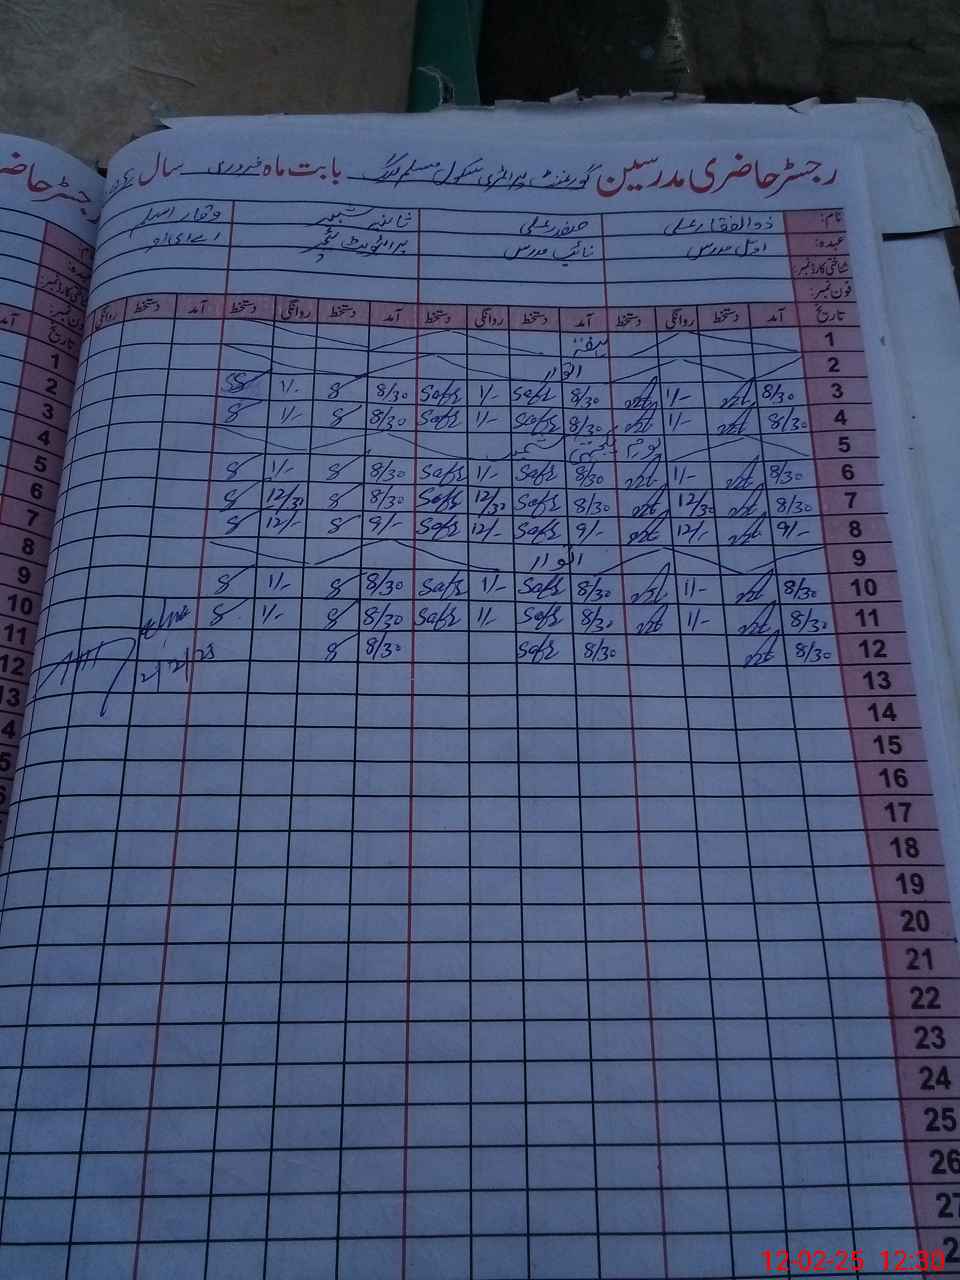 رجسٹر حاضری مدرسین گورنمنٹ پرائمری سکول مسلم بابت ماہ فروری سال
نام: ذوالفقار علی صفدر علی شانیر شبیر وقار اسلم
عہدہ: اول مدرس نائب مدرس پرائیویٹ ٹیچر اے ای او
شناختی کارڈ نمبر:
فون نمبر:
تاریخ آمد دستخط روانگی دستخط آمد دستخط روانگی دستخط آمد دستخط روانگی دستخط آمد دستخط روانگی
1 ہفتہ
2 اتوار
3 8/30 1/- 8/30 Safr 1/- Safr 8/30 8 1/- 8
4 8/30 1/- 8/30 Safr 1/- Safr 8/30 8 1/- 8
5 یوم یکجہتی کشمیر
6 8/30 1/- 8/30 Safr 1/- Safr 8/30 8 1/- 8
7 8/30 12/30 8/30 Safr 12/30 Safr 8/30 8 12/30 8
8 9/- 12/- 9/- Safr 12/- Safr 9/- 8 12/- 8
9 اتوار
10 8/30 1/- 8/30 Safr 1/- Safr 8/30 8 1/- 8
11 8/30 1/- 8/30 Safr 1/- Safr 8/30 8 1/- 8
12 8/30 8/30 Safr 8/30 8
13
14
15
16
17
18
19
20
21
22
23
24
25
26
27
2
رجسٹر حاض
آمد
1
2
3
4
5
6
7
8
9
10
11
12
13
4
5
12-02-25 12:30